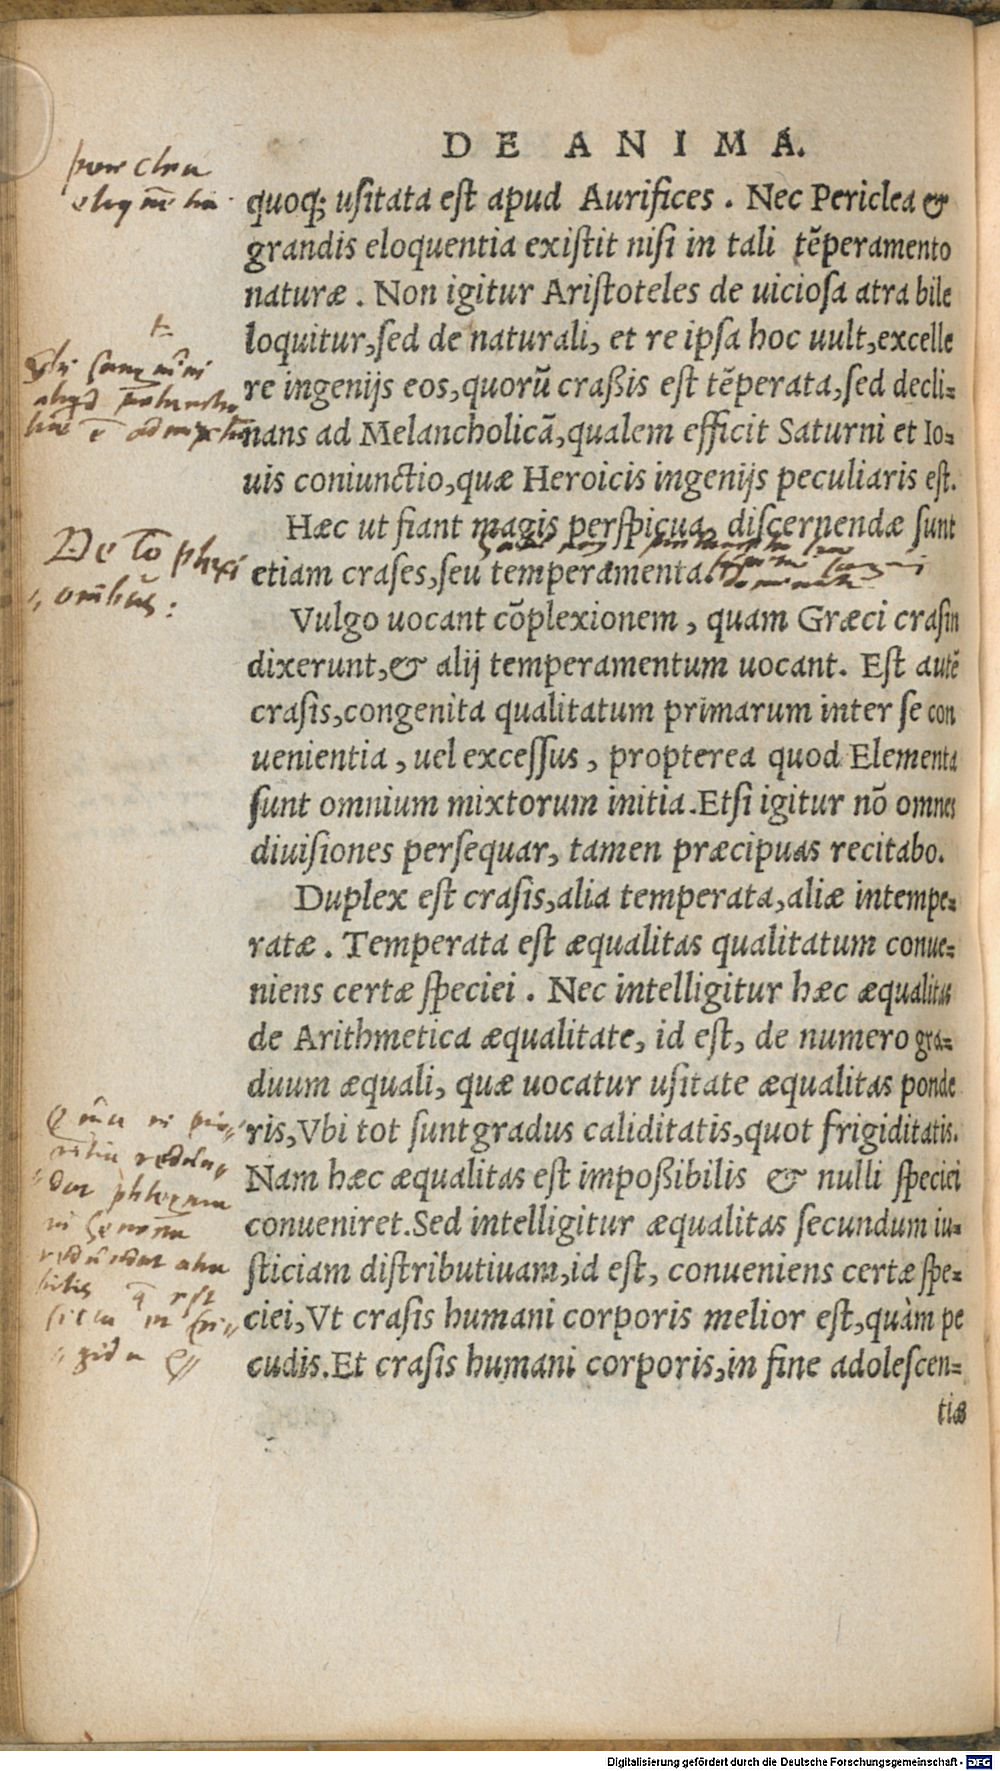 DE ANIMA.
quoq; usitata est apud Aurifices. Nec Periclea &
grandis eloquentia existit nisi in tali tẽperamento
naturæ. Non igitur Aristoteles de uiciosa atra bile
loquitur, sed de naturali, et re ipsa hoc uult, excelle
re ingenijs eos, quorũ craßis est tẽperata, sed decli-
nans ad Melancholicã, qualem efficit Saturni et Io-
uis coniunctio, quæ Heroicis ingenijs peculiaris est.
Hæc ut fiant magis perspicua, discernendæ sunt
etiam crases, seu temperamenta.
De cõplexi
onibus:
Vulgo uocant cõplexionem, quam Græci crasin
dixerunt, & alij temperamentum uocant. Est autẽ
crasis, congenita qualitatum primarum inter se con
uenientia, uel excessus, propterea quod Elementa
sunt omnium mixtorum initia. Etsi igitur nõ omnes
diuisiones persequar, tamen præcipuas recitabo.
Duplex est crasis, alia temperata, aliæ intempe-
ratæ. Temperata est æqualitas qualitatum conue-
niens certæ speciei. Nec intelligitur hæc æqualitas
de Arithmetica æqualitate, id est, de numero gra-
duum æquali, quæ uocatur usitate æqualitas ponde
ris, Vbi tot sunt gradus caliditatis, quot frigiditatis.
Nam hæc æqualitas est impoßibilis & nulli speciei
conueniret. Sed intelligitur æqualitas secundum iu-
sticiam distributiuam, id est, conueniens certæ spe-
ciei, Vt crasis humani corporis melior est, quàm pe
cudis. Et crasis humani corporis, in fine adolescen-
tiæ
Digitalisierung gefördert durch die Deutsche Forschungsgemeinschaft - DFG